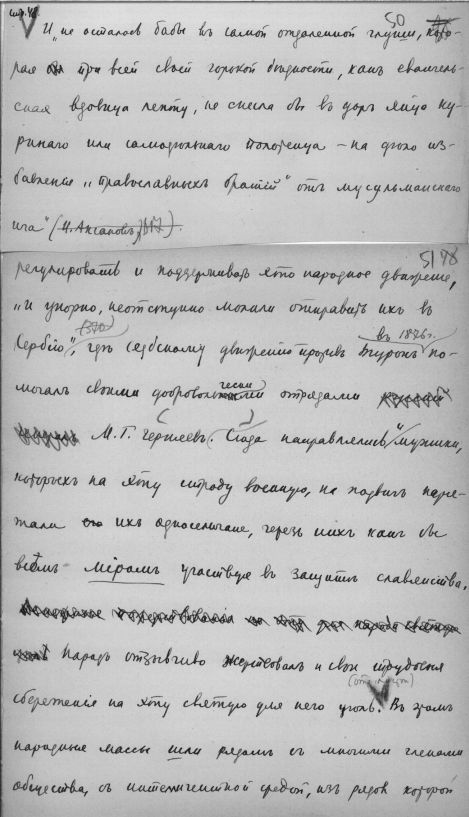 стр. 48
50
И „не осталось бабы въ самой отдаленной глуши, кото-
рая при всей своей горькой бѣдности, какъ евангель-
ская вдовица лепту, не снесла бы въ даръ яйцо ку-
ринаго или самодѣльнаго полотенца – на дѣло из-
бавленія „православныхъ братій" отъ мусульманскаго
ига" (И. Аксаковъ,
51 48
регулировать и поддерживать это народное движеніе,
„и упорно, неотступно молили отправить ихъ въ
Сербію", гдѣ сербскому движенію противъ Турокъ въ 1876 г. по-
могалъ своими добровольческими отрядами
М. Г. Черняевъ. Сюда направлялись „мужики,
которыхъ на эту страду военную, на подвигъ наря-
жали ихъ односельчане, черезъ нихъ какъ бы
всѣмъ міромъ участвуя въ защитѣ славянства.
Народъ отзывчиво жертвовалъ и свои трудовыя
сбереженія на эту святую для него цѣль. Въ этомъ
народныя массы шли рядомъ съ многими членами
общества, съ интеллигентной средой, изъ рядовъ которой